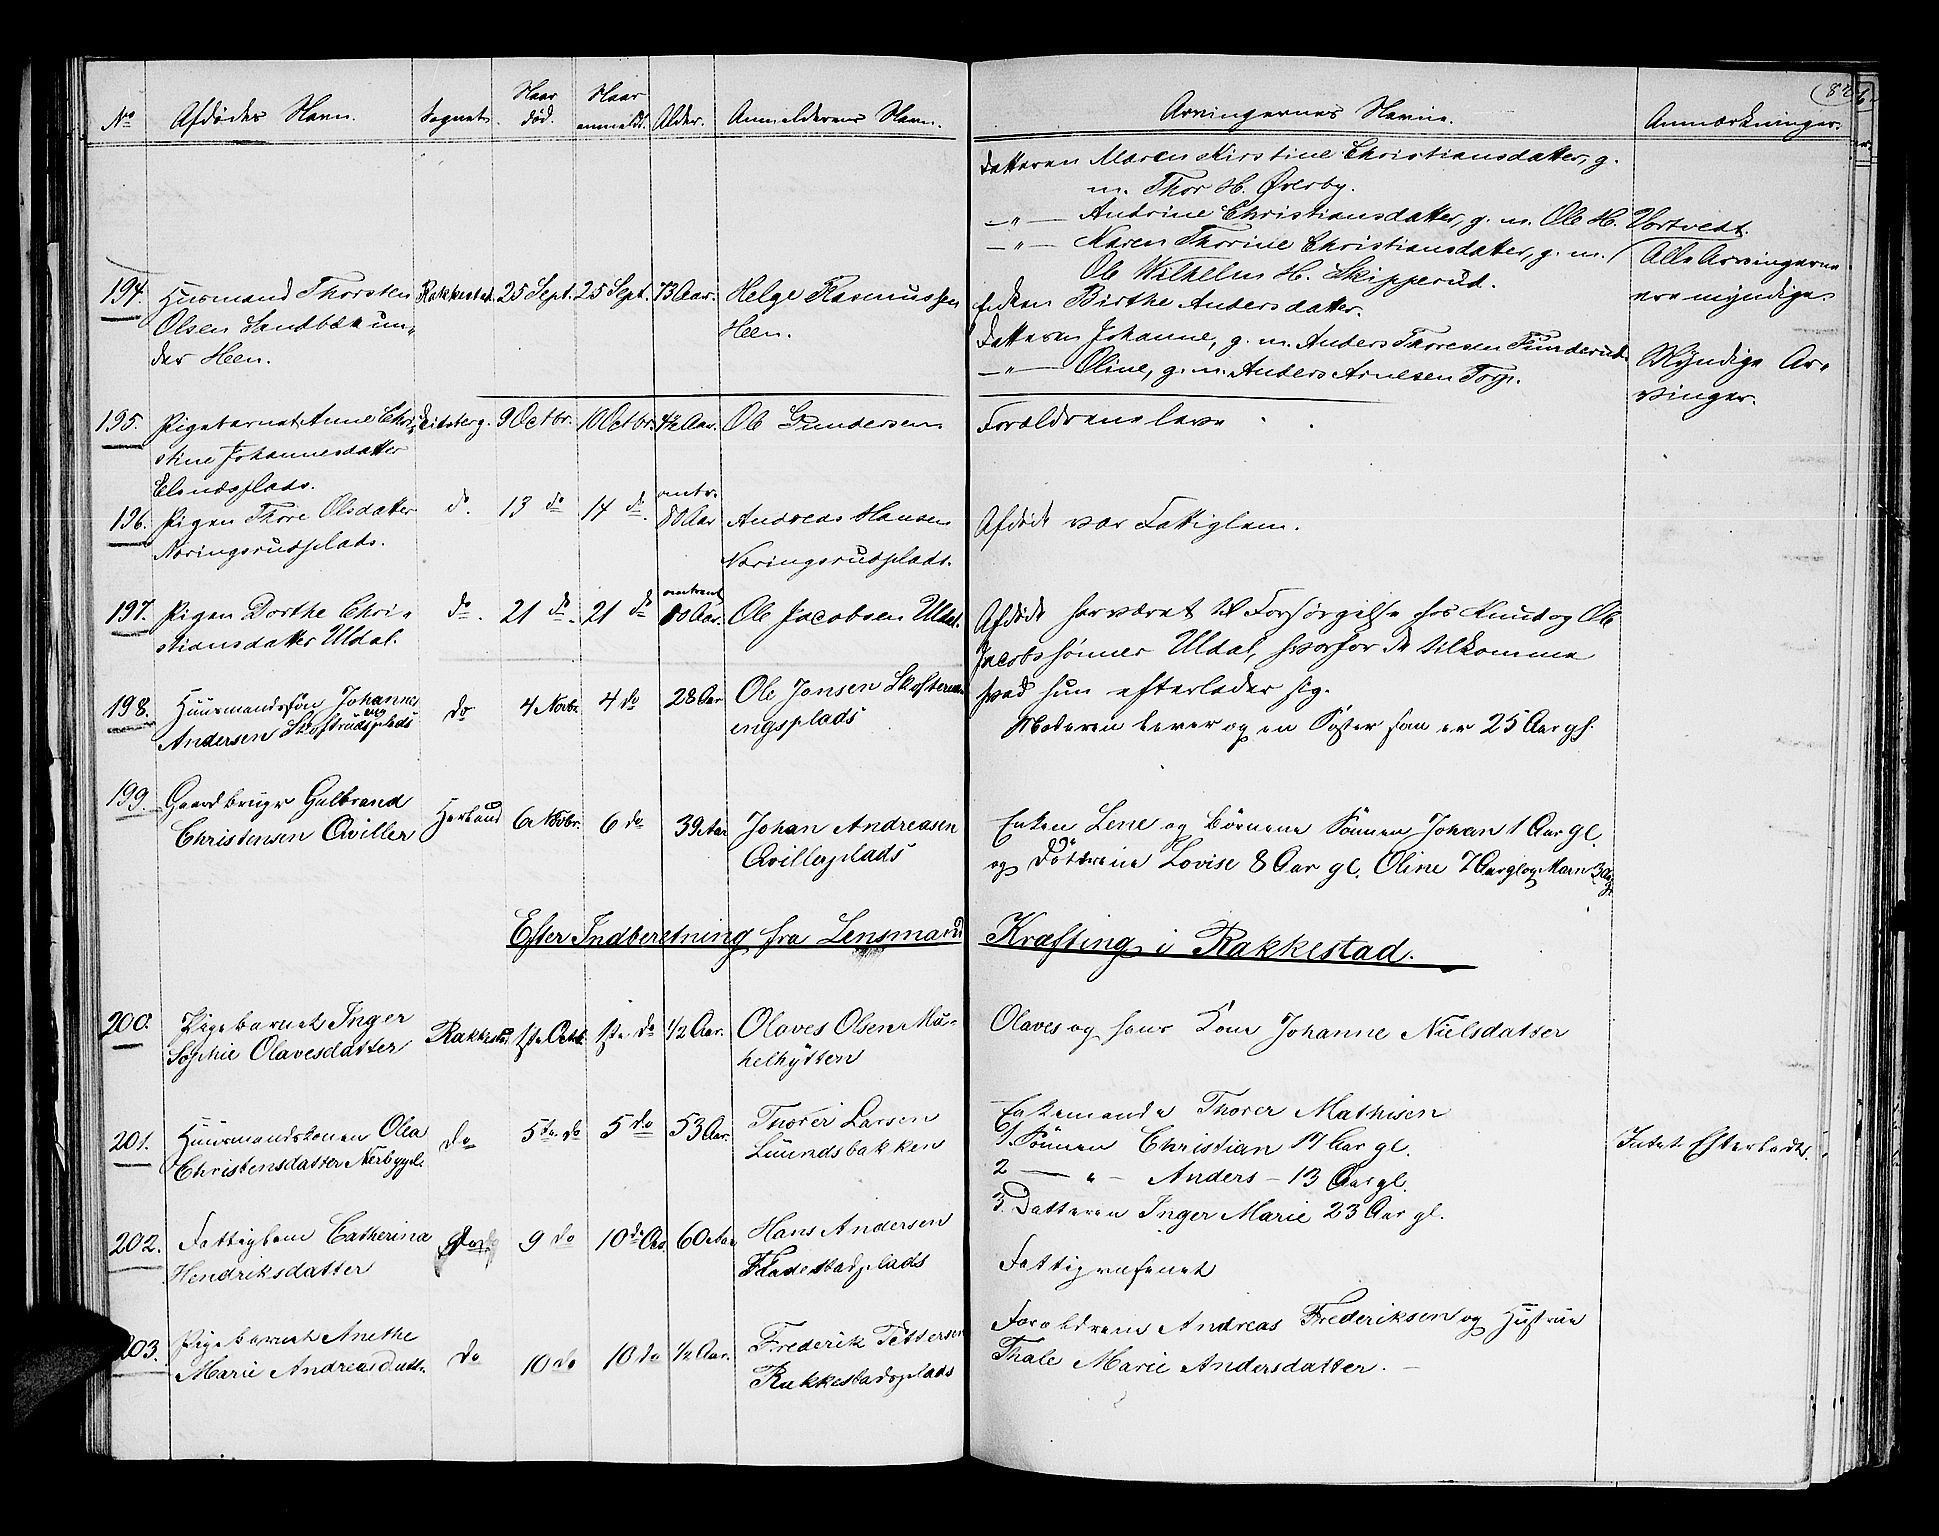 No Afdødes Navn. Sognet. Naar død. Naar anmeldt. Alder. Anmelderens Navn. Arvingernes Navne. Anmærkninger. 82
Datteren Maren Kirstine Christiansdatter, g.
m. Thor H. Øverby.
—"— Andrine Christiansdatter, g. m. Ole H. Vortvedt.
—"— Karen Thorine Christiansdatter, g. m.
Ole Wilhelm H. Skipperud.
Alle Arvingerne
ere myndige
194. Husmand Thorsten Rakkestad. 25 Sept. 25 Sept. 73 Aar. Helge Rasmussen
Olsen Sandbæk un-
der Heen.
Heen.
Enken Birthe Andersdatter.
Datteren Johanne, g. m. Anders Thoresen Funderud.
—"— Oline, g. m. Anders Arnesen Torp.
Myndige Ar-
vinger.
195. Pigebarnet Anne Chri- Eidsberg. 9 Octbr. 10 Octbr. 4½ Aar. Ole Gundersen Forældrene leve
stine Johannesdatter
plads.
196. Pigen Thore Olsdatter do. 13 do 14 do. omtr. 80 Aar Andreas Hansen Afdøde var Fattiglem.
Næringsrudplads.
Næringsrudplads.
197. Pigen Dorthe Chri- do. 21 do. 21 do omtrent 80 Aar. Ole Jacobsen Uldal.
stiansdatter Uldal.
Afdøde har været til Forsørgelse hos Knud og Ole
Jacobssønner Uldal, hvorfor de tilkomme
hvad hun efterlader sig.
198. Huusmandssøn Johannes do 4 Novbr. 4 do 28 Aar Ole Jonsen
Andersen Skofterudengsplads
engsplads
Moderen lever og en Søster som er 25 Aar gl.
199. Gaardbruger Gulbrand 6 Novbr. 6 do 39 Aar Johan Andreasen
Christensen Qviller
Qvillerplads
Enken Lene og Børnene Sønnen Johan 1 Aar gl.
og Døtrene Lovise 8 Aar gl. Oline 7 Aar gl og Maren 3 Aar gl.
Efter Indberetning fra Lensmand Kræfting i Rakkestad.
200. Pigebarnet Inger Rakkestad 1ste Octbr. 1ste do ½ Aar. Olaves Olsen Mu-
Sophie Olavesdatter
helhytten
Olaves og hans Kone Johanne Nielsdatter
201. Huusmandskonen Olea do 5te do 5 do 53 Aar. Thorer Larsen
Christensdatter Nerbygd.
Luundsbakken
Enkemanden Thorer Mathisen
1. Sønnen Christian 17 Aar gl.
2 — " — Anders — 13 Aar gl.
3. Datteren Inger Marie 23 Aar gl.
Intet Efterladt.
202. Fattiglem Catherina do 9 do 10 do 60 Aar Hans Andersen
Hendriksdatter
Fladestadplads
Fattigvæsenet
203. Pigebarnet Anethe do 10 do 10 do ½ Aar. Frederik Pettersen
Marie Andreasdatt.
Rakkestadsplads
Forældrene Andreas Frederiksen og Hustrue
Thale Marie Andersdatter.